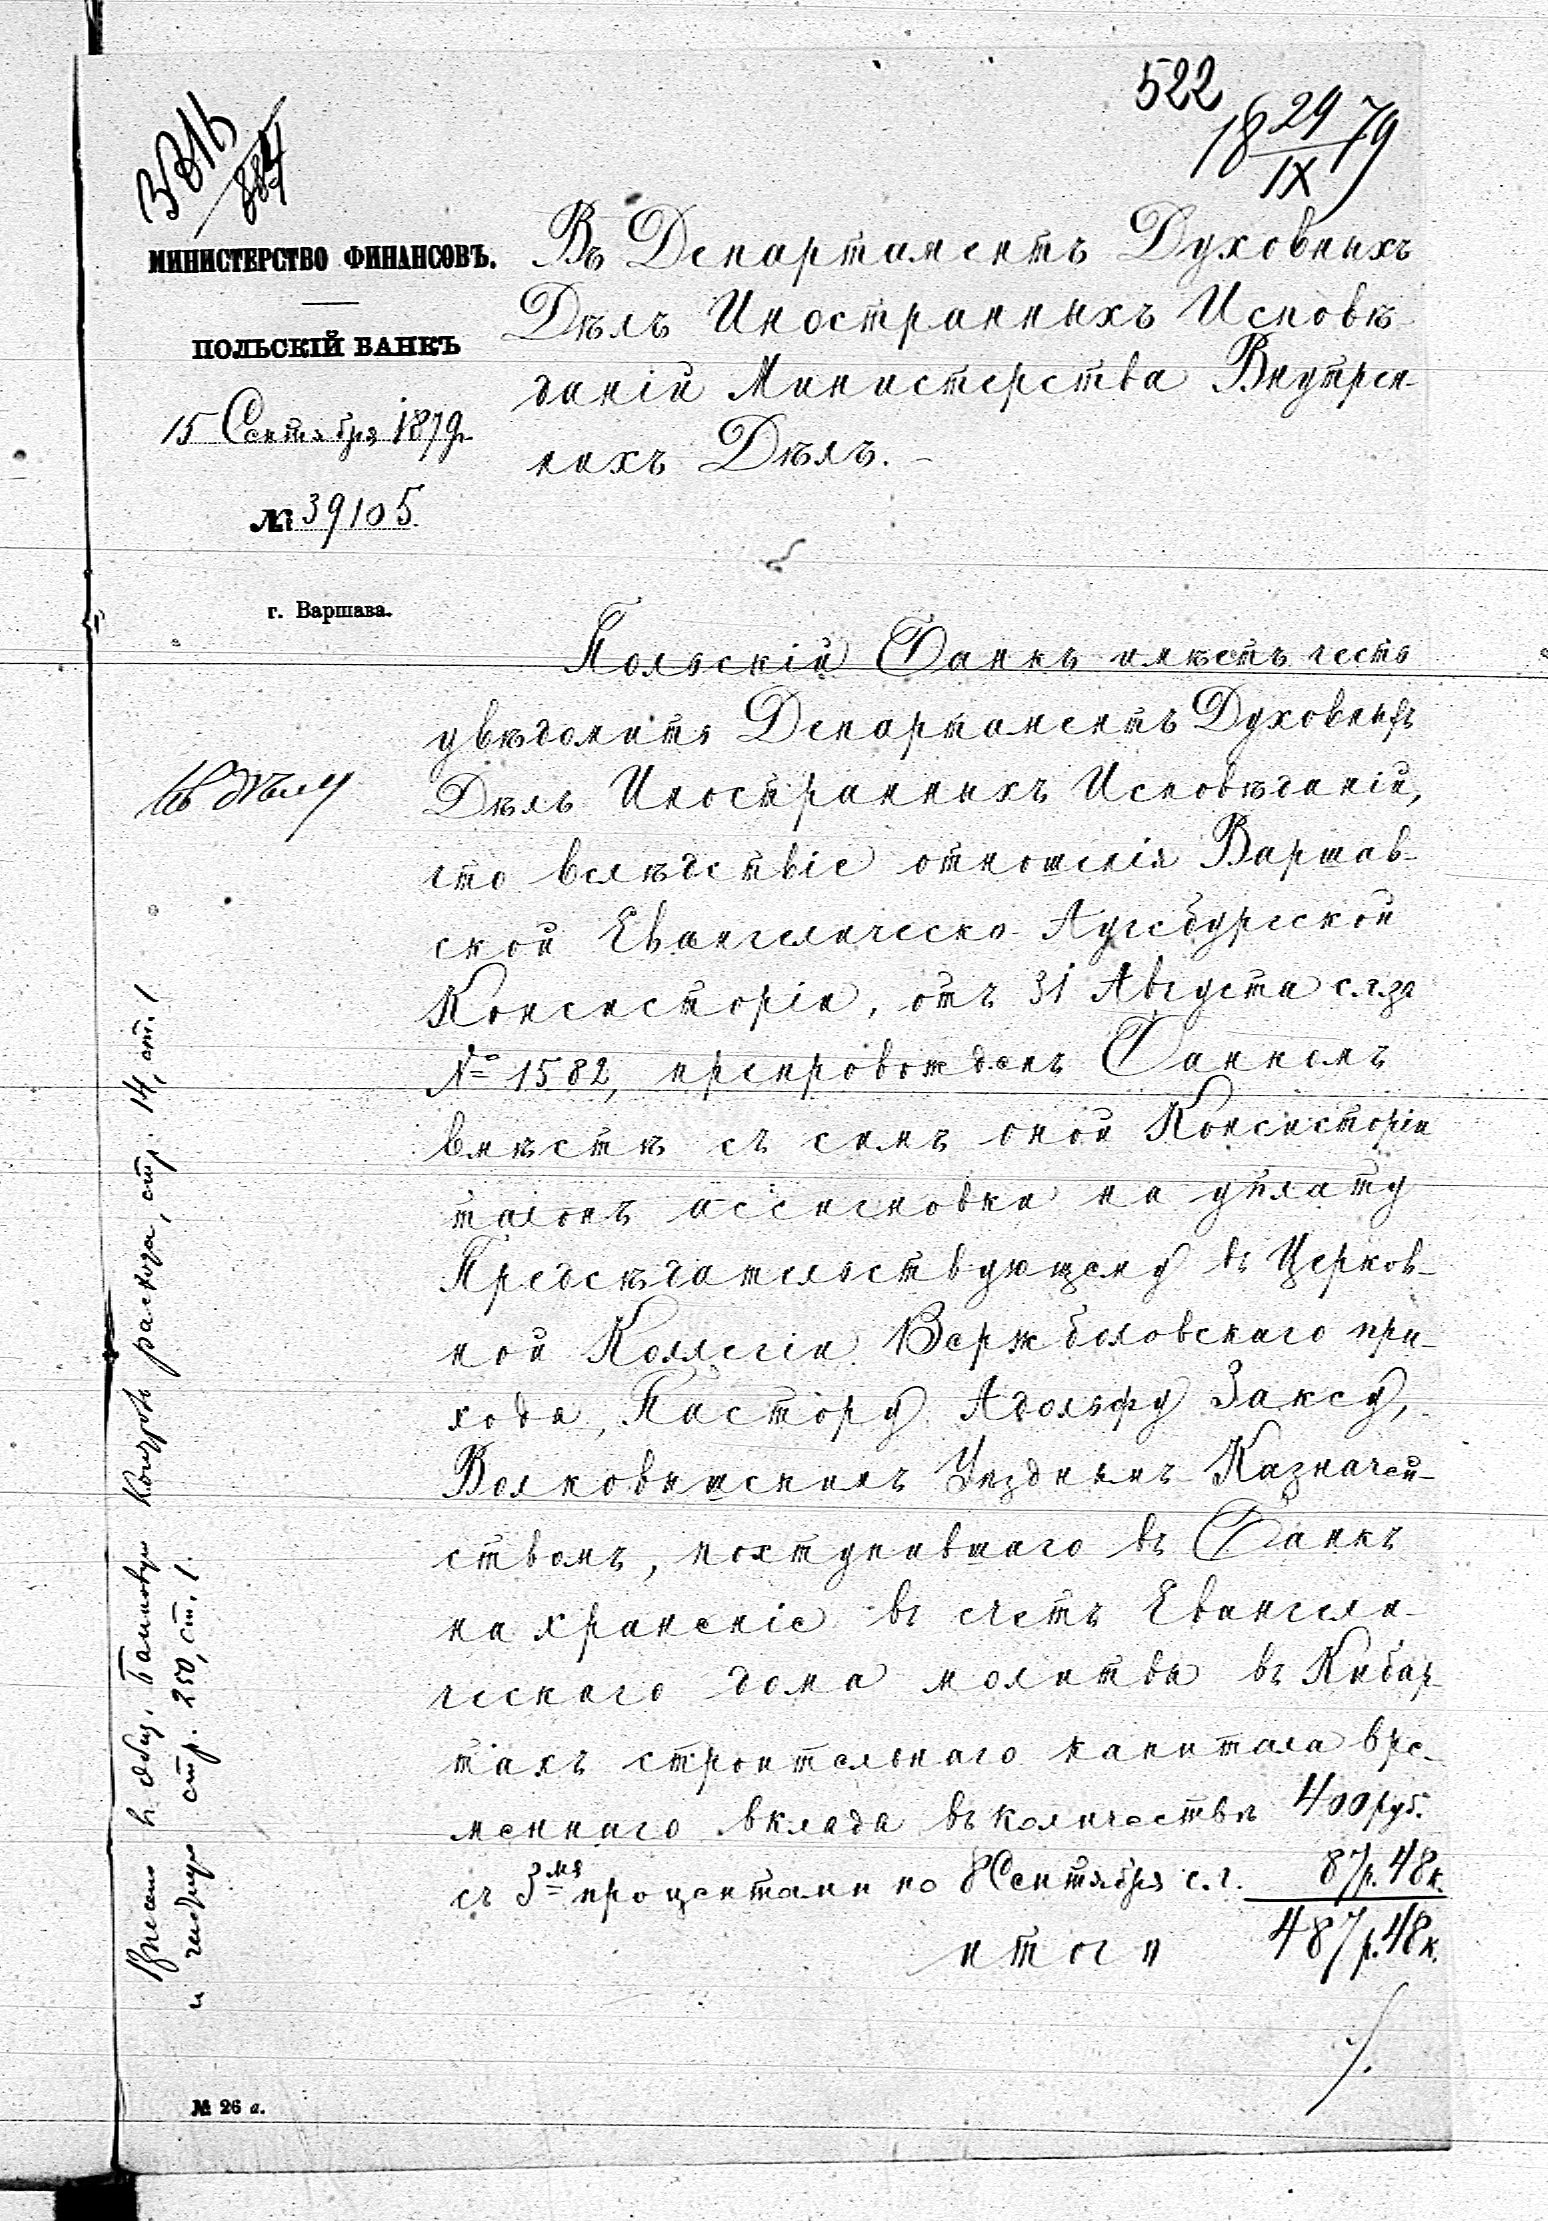 522
18 29/IX 79
3316/884
МИНИСТЕРСТВО ФИНАНСОВЪ.
ПОЛЬСКІЙ БАНКЪ
15 Сентября 1879 г.
№ 39105
г. Варшава.
Въ Департаментъ Духовныхъ
Дѣлъ Иностранныхъ Исповѣ
даній Министерства Внутрен-
нихъ Дѣлъ. –
Польскій Банкъ имѣетъ честь
увѣдомить Департаментъ Духовныхъ
Дѣлъ Иностранныхъ Исповѣданій,
что вслѣдствіе отношенія Варшав-
ской Евангелическо-Аугсбургской
Консисторіи, отъ 31 Августа с.г. за
№ 1582, препровожденъ Банкомъ
вмѣстѣ съ симъ оной Консисторіи
талонъ ассигновки на уплату
Предсѣдательствующему въ Церков-
ной Коллегіи Вержболовскаго при-
хода, Пастору Адольфу Заксу,
Волковышскимъ Уѣзднымъ Казначей-
ствомъ, поступившаго въ Банкъ
на храненіе въ счетъ Евангели-
ческаго дома молитвы въ Кибар-
тахъ строительнаго капитала вре-
меннаго вклада въ количествѣ 400 руб.
съ 3мя процентами по 8 Сентября с.г. 87 р. 48 к.
итого 487 р. 48 к.
./.
Къ дѣлу
Внесено въ общ. Банковую Контроль расхода, стр. 14, ст. 1
и стр. 250, ст. 1.
№ 26 а.